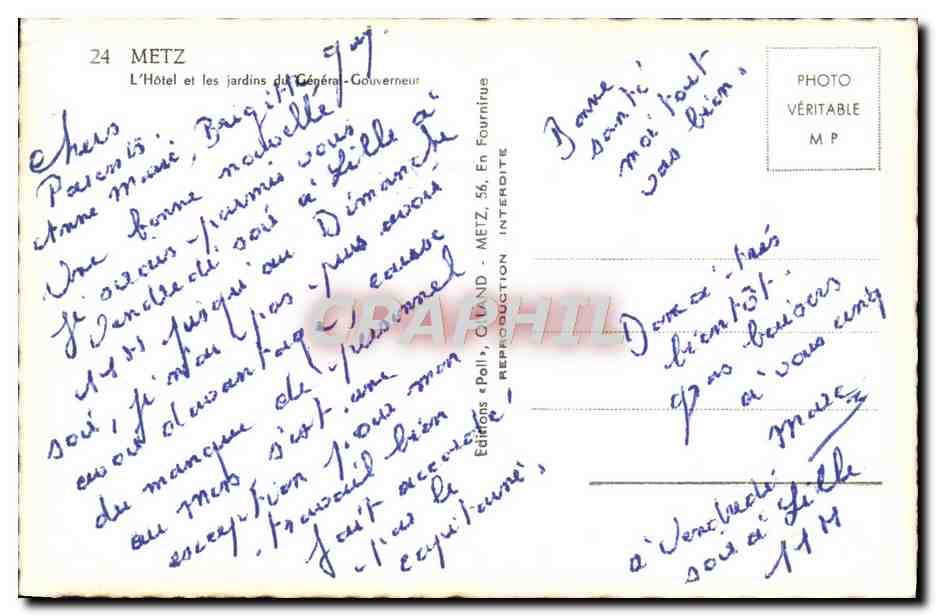 24 METZ
L'Hôtel et les jardins du Général-Gouverneur
Chers
Parents,
Anne Marie, Brigitte, Guy.
Une bonne nouvelle,
j'aurais permis vous
Vendredi soir à Lille à
11H jusqu'au Dimanche
soir, j'n'au pas pus avoir
avoir davantage, cause
du manque de personnel
au mess s'est une
exception pour mon
travail bien
fait accordé
par le
capitaine.
Bonne
santé
moi tout
vas bien,
Donc à très
bientôt
gros baisers
à vous cinq
Marc
à Vendredi
soir à Lille
11H
PHOTO
VÉRITABLE
M P
Editions «Poll», OLLAND - METZ, 56, En Fournirue
REPRODUCTION INTERDITE
CPAPHIL